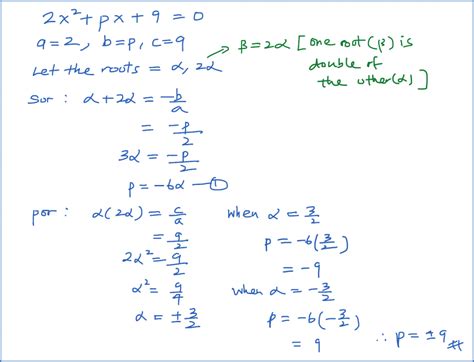 2x² + px + 9 = 0
a = 2, b = p, c = 9
Let the roots = α, 2α
β = 2α [one root (β) is
double of
the other(α)]
sor : α + 2α = -b/a
= -p/2
3α = -p/2
p = -6α — ①
por : α(2α) = c/a
= 9/2
2α² = 9/2
α² = 9/4
α = ± 3/2
when α = 3/2
p = -6(3/2)
= -9
when α = -3/2
p = -6(-3/2)
= 9
∴ p = ±9 #